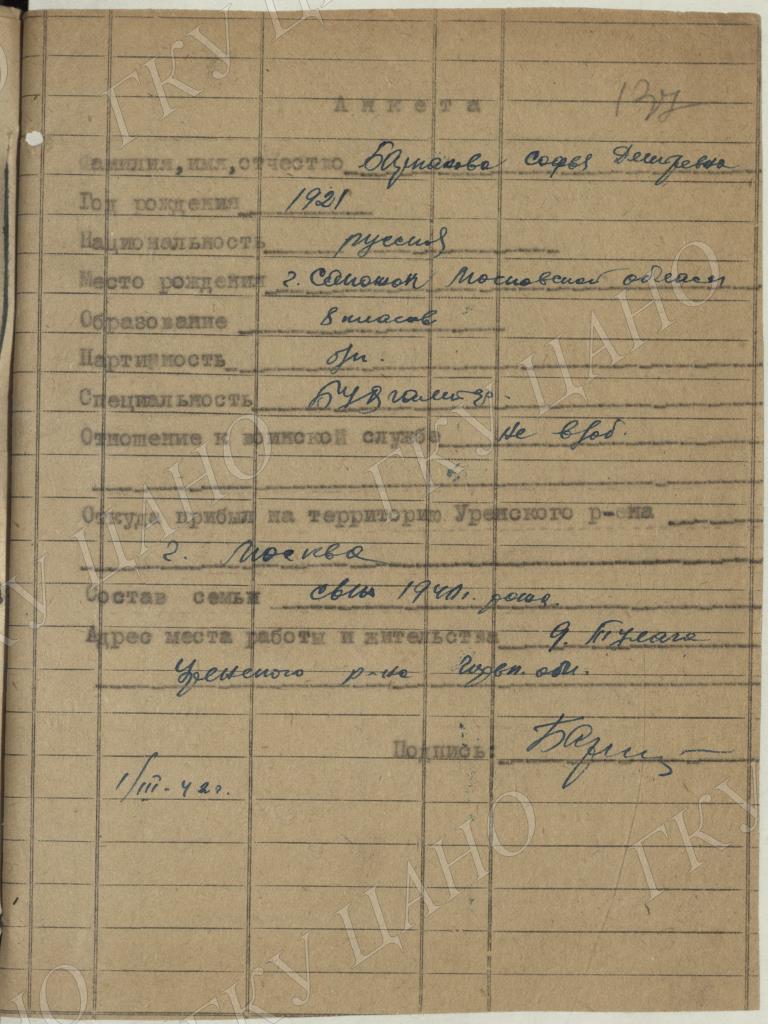 Анкета
Фамилия, имя, отчество Бармакова Софья Дмитревна
Год рождения 1921
Национальность русская
Место рождения г. Сапожок Московской области
Образование 8 класов
Партийность б/п.
Специальность Бухгалтер.
Отношение к воинской службе не вооб.
Откуда прибыл на территорию Уренского р-она
г. Москва
Состав семьи сын 1940 г. рожд.
Адрес места работы и жительства д. Тулага
Уренского р-на Горьк. обл.
Подпись:
1/III-42 г.
ГКУ ЦАНО